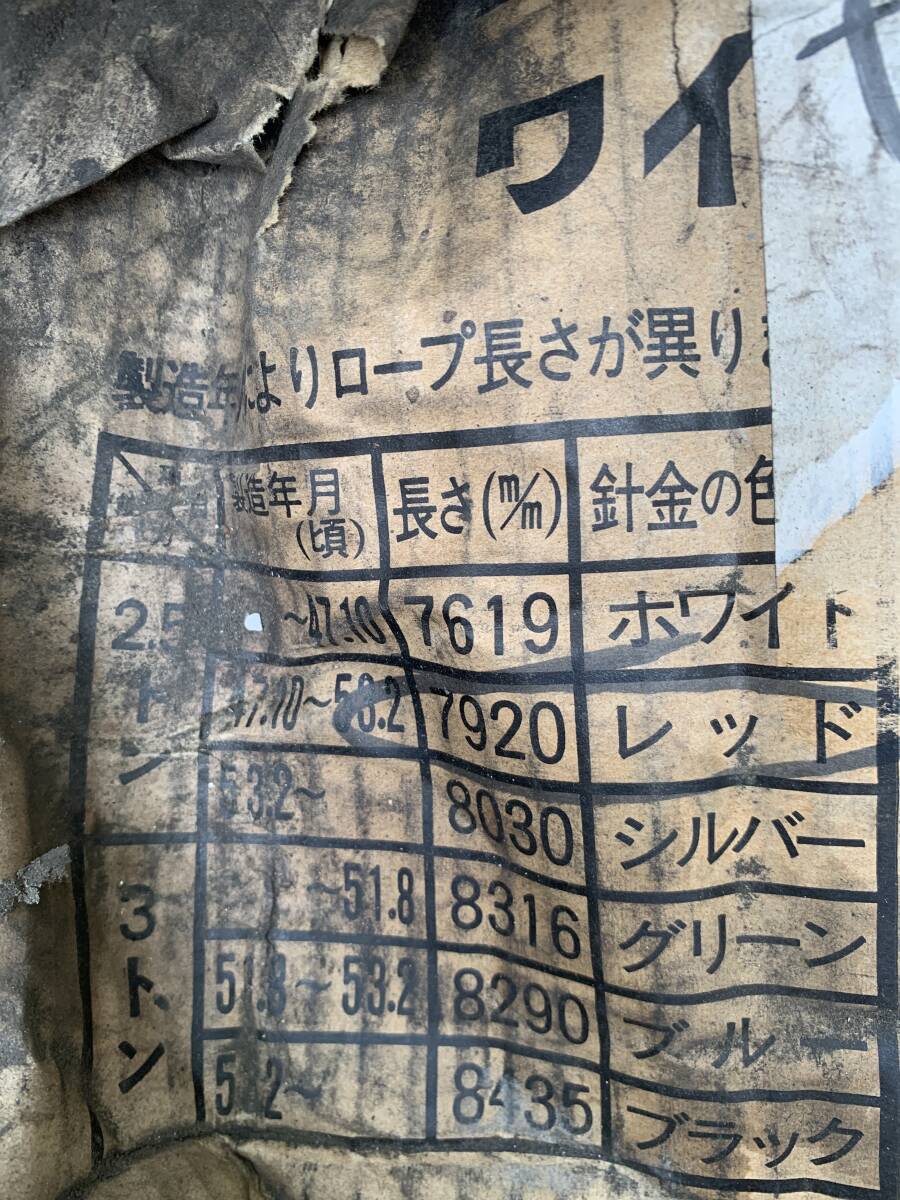 ワイ
製造年によりロープ長さが異りま
製造年月(頃) 長さ(m/m) 針金の色
2.5トン ~47.10 7619 ホワイト
47.10~53.2 7920 レッド
53.2~ 8030 シルバー
3トン ~51.8 8316 グリーン
51.8~53.2 8290 ブルー
5 .2~ 8435 ブラック